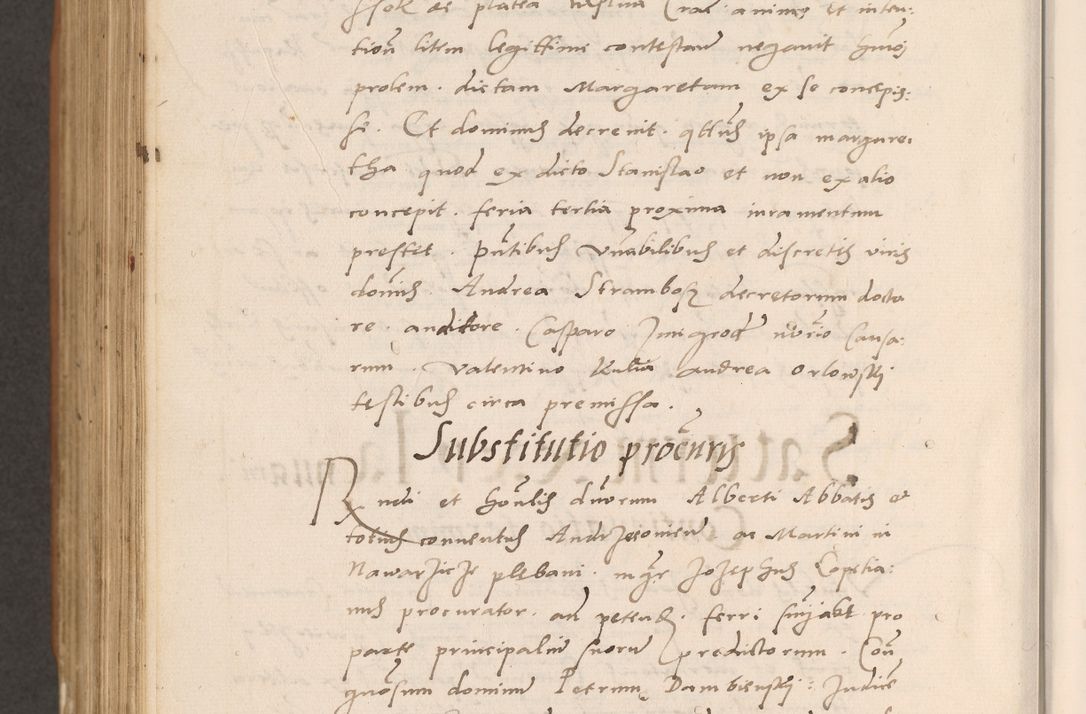 de platea animo et inten:
tion litem legittime contestan negavit hmoi
prolem . dictam Margaretam ex se concepis:
se . Et dominus decrevit . qtus ipsa margare.
tha quod ex dicto Stanislao et non ex alio
concepit . feria tertia proxima iuramentum
prestet . pntibus vnabilibus et discretis viris
domis . Andrea Strambosz decretorum docto
re . auditore . Casparo Jmigrod notario Causa:
rum . Valentino Kulia andrea Orlowskj
testibus circa premissa .
Substitutio procuris
Rx ndi et honlis duorum Alberti Abbatis et
totius conventus Andrzeoviens ac Martini in
Nawarzicze plebani . mgr Jozephus Copetia:
nus procurator . ad petend . ferri snijakt pro
parte principalium suorum predictorum . Con
quosum dominum Petrum Dambienskj : Judice